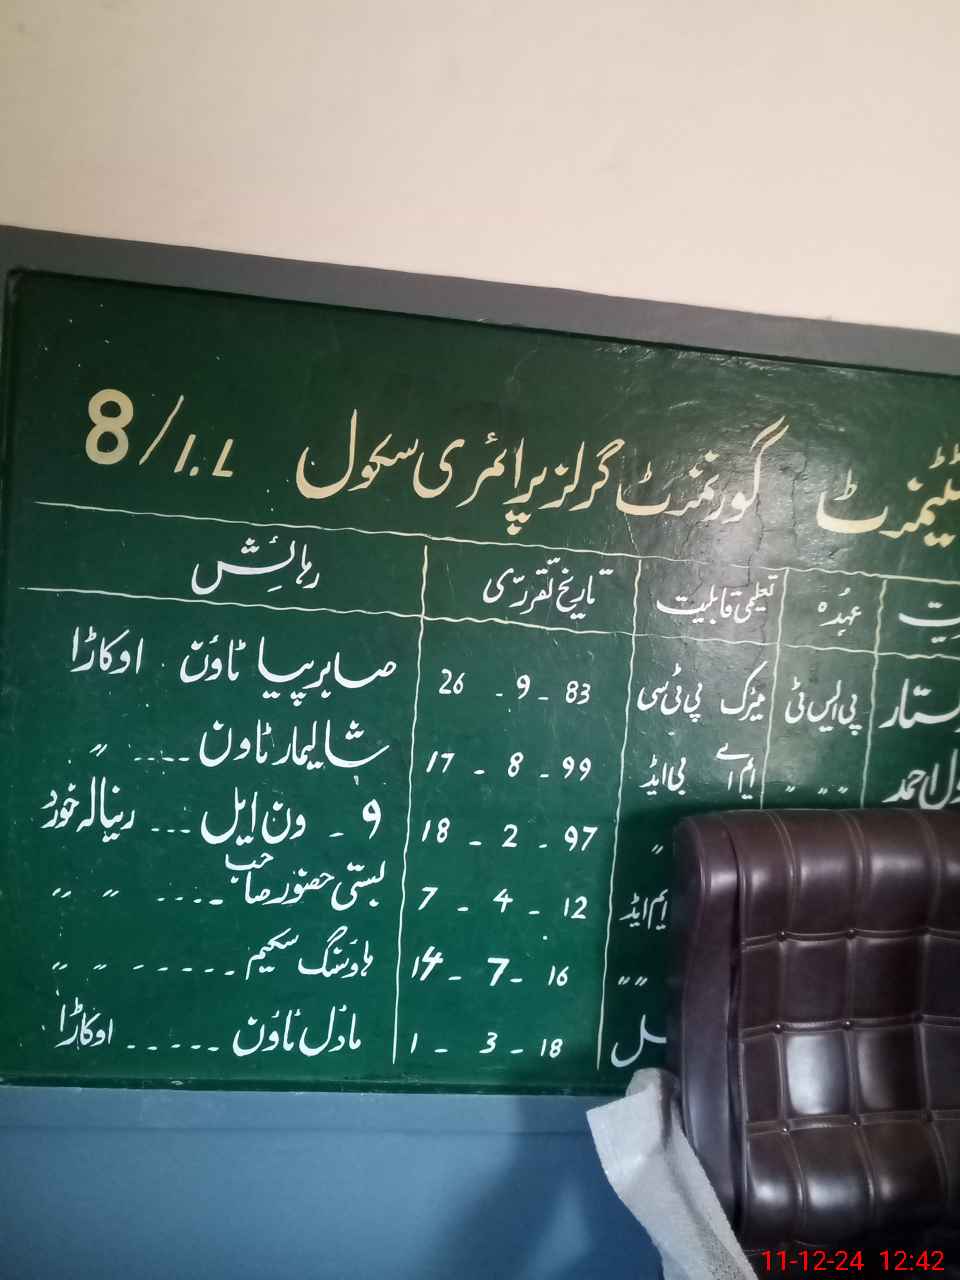 گورنمنٹ گرلز پرائمری سکول 8/1.L
عہدہ تعلیمی قابلیت تاریخ تقرری رہائش
پی ایس ٹی میٹرک پی ٹی سی 26 - 9 - 83 صابر پیا ٹاؤن اوکاڑا
احمد 〃 〃 〃 ایم اے بی ایڈ 17 - 8 - 99 شالیمار ٹاون .... 〃
〃 18 - 2 - 97 9 - ون ایل ... رینالہ خورد
ایم ایڈ 7 - 4 - 12 بستی حضور صاحب .... 〃 〃
〃 〃 14 - 7 - 16 ہاؤسنگ سکیم ------ 〃 〃
1 - 3 - 18 ماڈل ٹاؤن ..... اوکاڑا
11-12-24 12:42